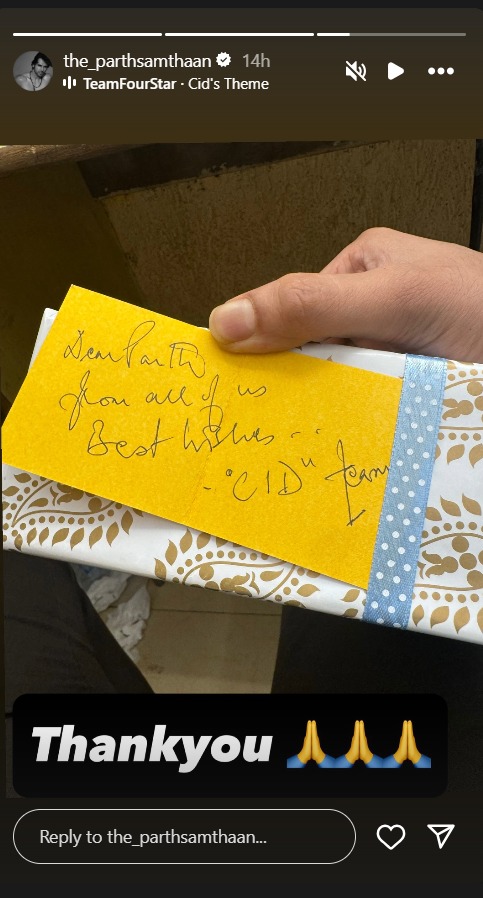 the_parthsamthaan 14h
TeamFourStar · Cid's Theme
Dear Parth
from all of us
Best wishes...
- "CID" team
Thankyou 🙏🙏🙏
Reply to the_parthsamthaan...